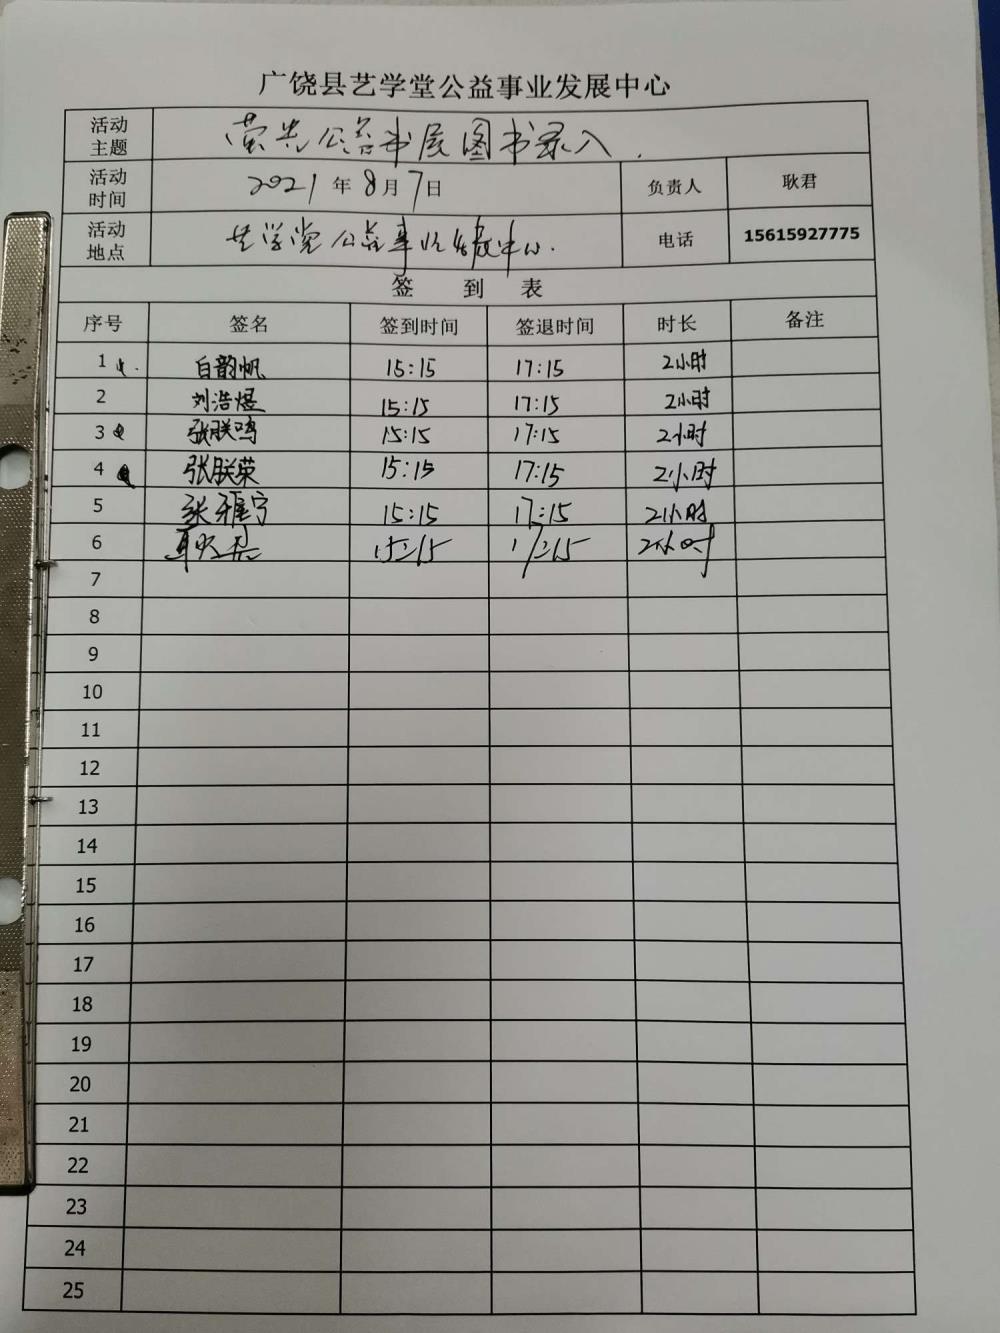 广饶县艺学堂公益事业发展中心
活动主题 萤光公益书屋图书录入.
活动时间 2021年8月7日 负责人 耿君
活动地点 艺学堂公益事业发展中心. 电话 15615927775
签 到 表
序号 签名 签到时间 签退时间 时长 备注
1 白韵帆 15:15 17:15 2小时
2 刘浩煜 15:15 17:15 2小时
3 张朕鸣 15:15 17:15 2小时
4 张朕荣 15:15 17:15 2小时
5 张雅宁 15:15 17:15 2小时
6 15:15 17:15 2小时
7
8
9
10
11
12
13
14
15
16
17
18
19
20
21
22
23
24
25